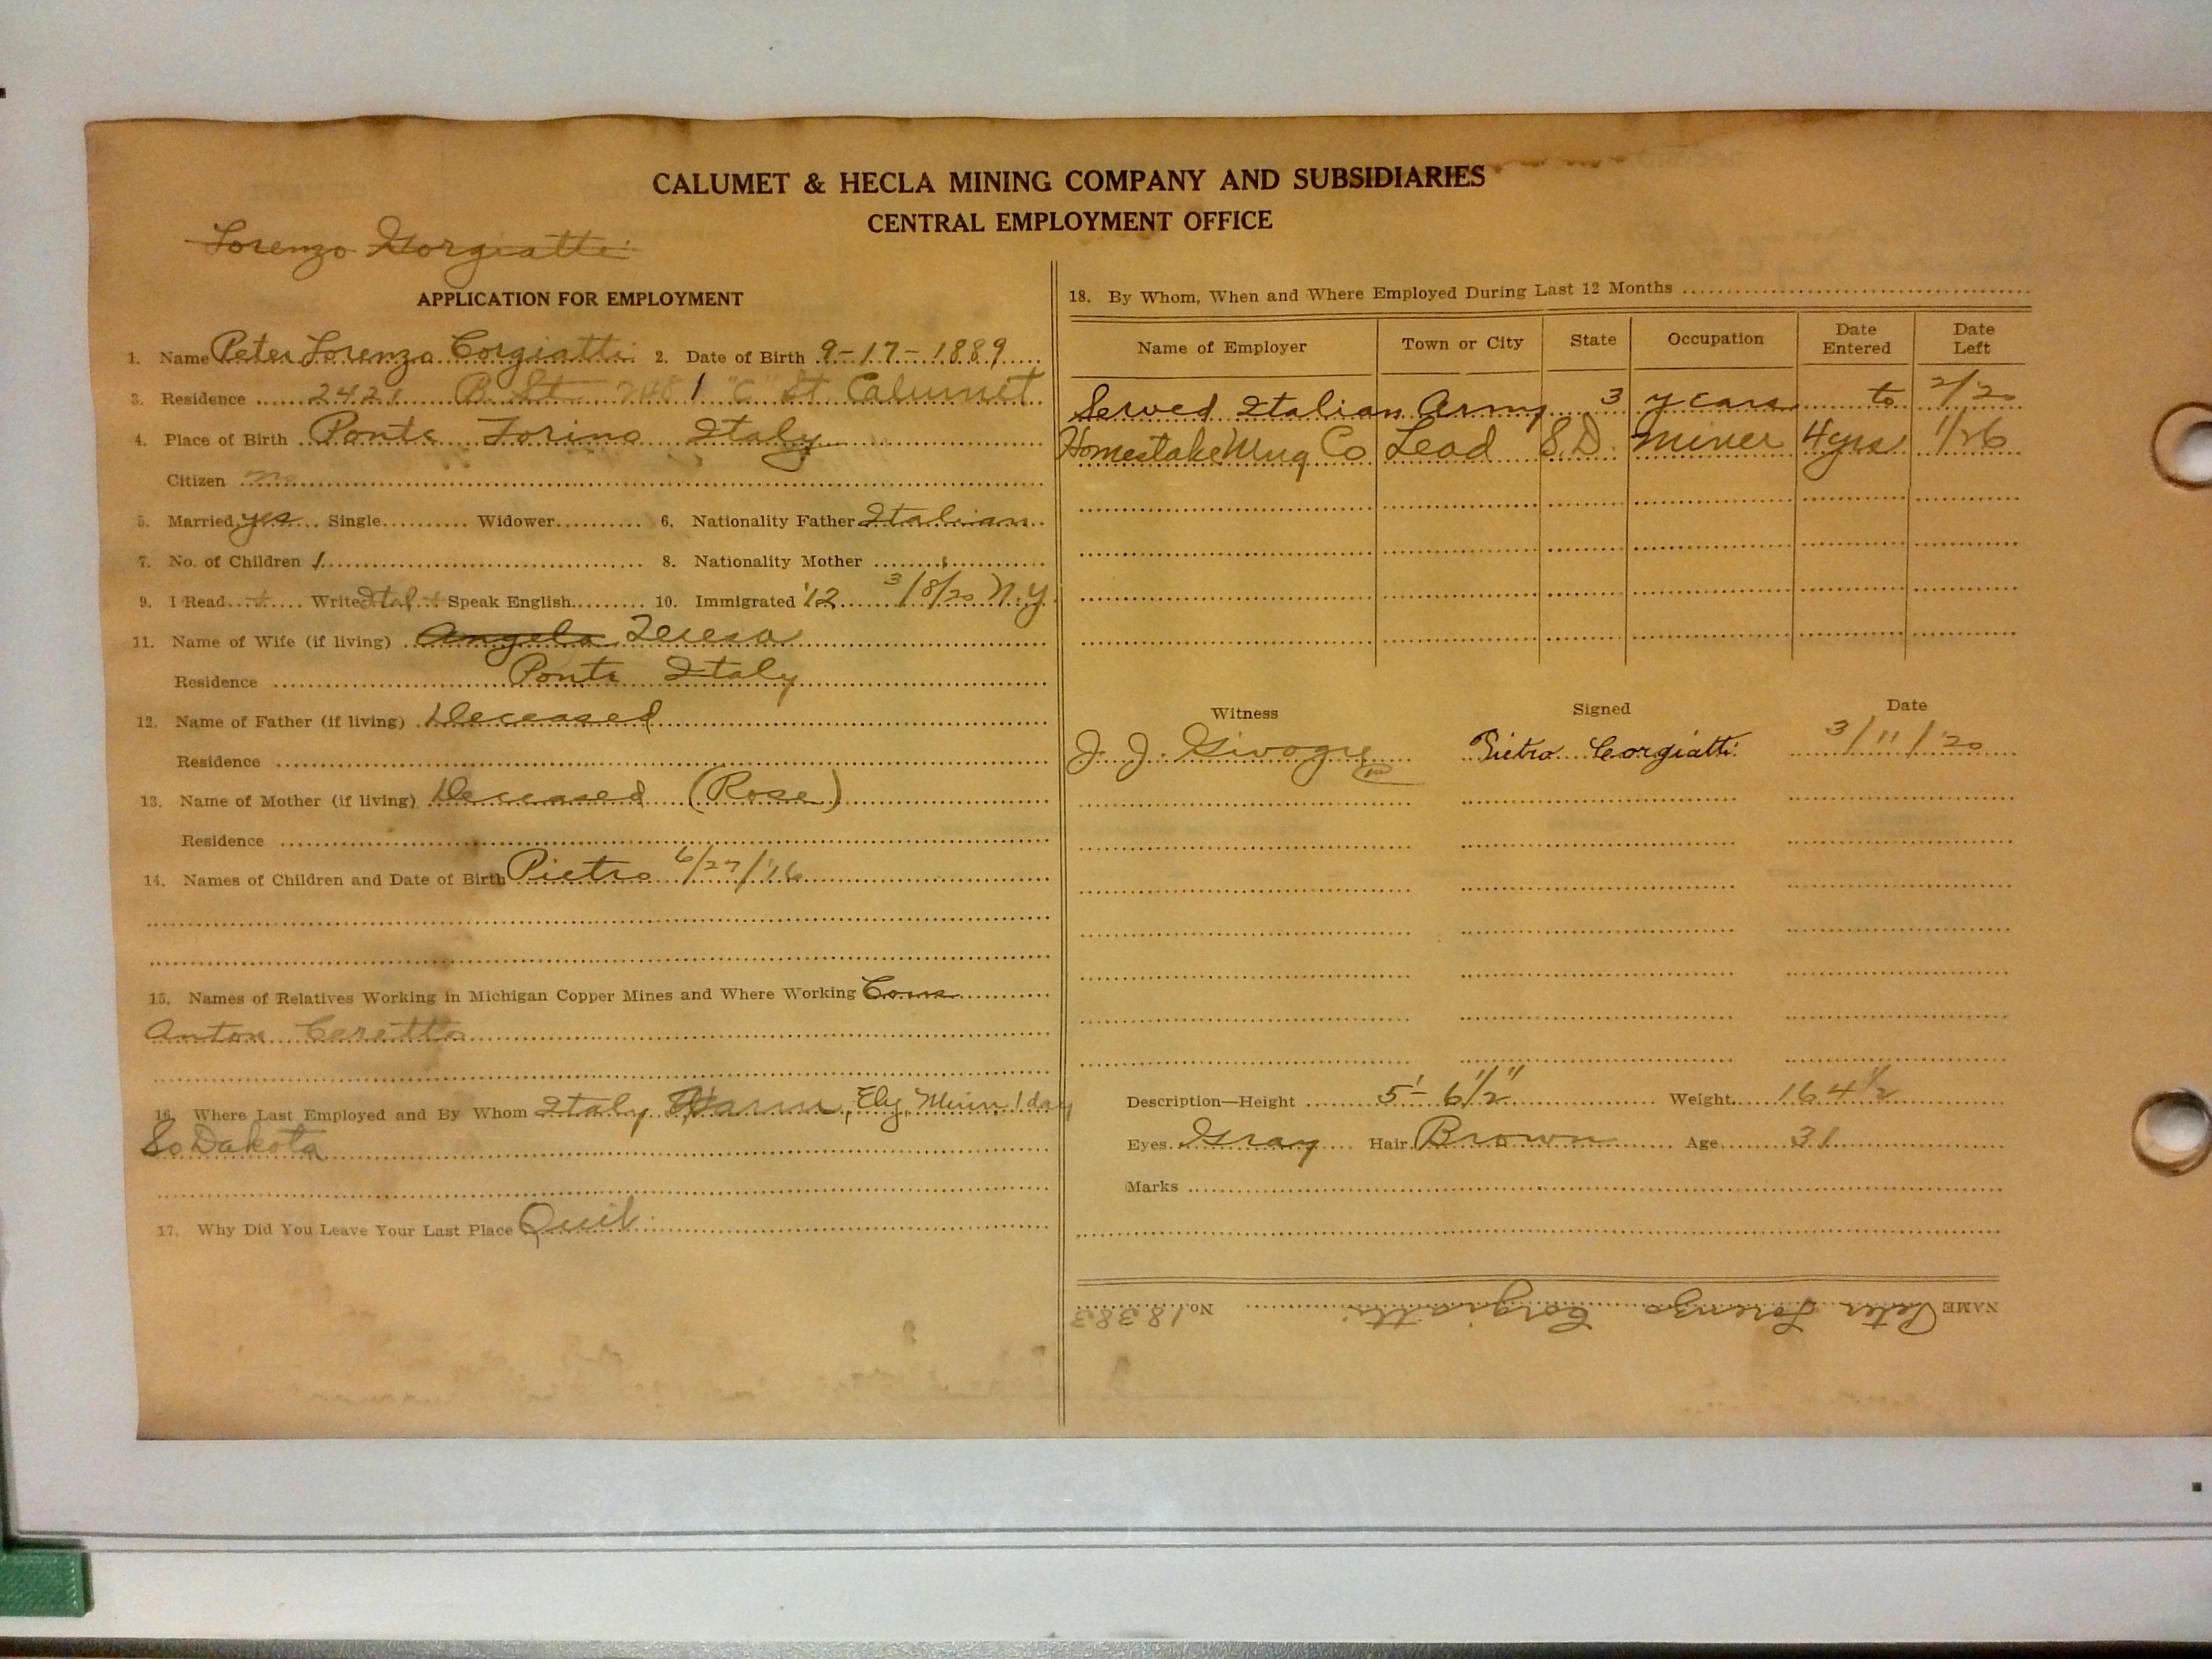 CALUMET & HECLA MINING COMPANY AND SUBSIDIARIES
CENTRAL EMPLOYMENT OFFICE
Lorenzo Gorgiatti
APPLICATION FOR EMPLOYMENT
1. Name Peter Lorenzo Corgiatti 2. Date of Birth 9-17-1889
3. Residence 2421 B. St "C" St Calumet
4. Place of Birth Ponte Torino Italy
Citizen no
5. Married yes Single Widower 6. Nationality Father Italian
7. No. of Children 1 8. Nationality Mother "
9. I Read + Write Ital + Speak English 10. Immigrated '12 3/8/20 N.Y.
11. Name of Wife (if living) Angela Teresa
Residence Ponte Italy
12. Name of Father (if living) Deceased
Residence
13. Name of Mother (if living) Deceased (Rose)
Residence
14. Names of Children and Date of Birth Pietro 6/27/'16
15. Names of Relatives Working in Michigan Copper Mines and Where Working
Anton Ceretto
16. Where Last Employed and By Whom Italy, Ely, Minn 1 day
So Dakota
17. Why Did You Leave Your Last Place Quit
18. By Whom, When and Where Employed During Last 12 Months
Name of Employer Town or City State Occupation Date Entered Date Left
Served Italian Army 3 years to 2/20
Homestake Mng Co Lead S.D. Miner 4yrs 1/26
Witness Signed Date
J. J. Givogre Pietro Corgiatti 3/11/20
Description—Height 5'-6 1/2" Weight 164 1/2
Eyes Gray Hair Brown Age 31
Marks
NAME Peter Lorenzo Corgiatti No. 18383